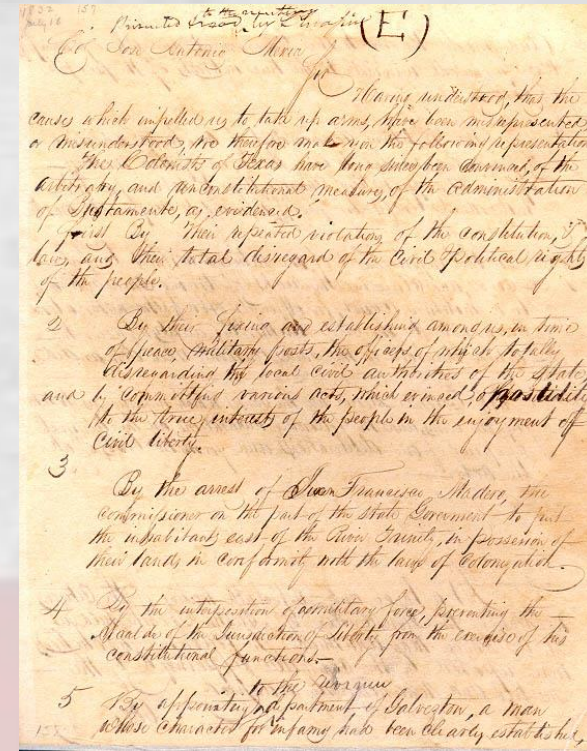 1832 157
July 18
to the meeting
Presented (E)
Col Jose Antonio Mexia
Sir
Having understood, that the
causes which impelled us to take up arms, have been misrepresented
or misunderstood, we therefore make you the following representation
The Colonists of Texas have long since been convinced, of the
arbitrary, and unconstitutional measures, of the administration
of Bustamente, as evidenced.
First By their repeated violations of the constitution, &
laws, and their total disregard of the Civil & political rights
of the people.
2 By their fixing and establishing among us, in time
of peace, military posts, the officers of which totally
disregarding the local civil authorities of the state,
and by committing various acts, which evinced, opposition
to the true interest of the people in the enjoyment of
civil liberty.
3
By the arrest of Juan Francisco Madero, the
commissioner on the part of the State Government to put
the inhabitants east of the River Trinity, in possession of
their lands in conformity with the laws of Colonization.
4 By the interposition of a military force, preventing the
Alcalde of the Jurisdiction of Liberty from the exercise of his
constitutional functions.
to the
5 By appointing department of Galveston, a man
whose character for infamy had been clearly established
155